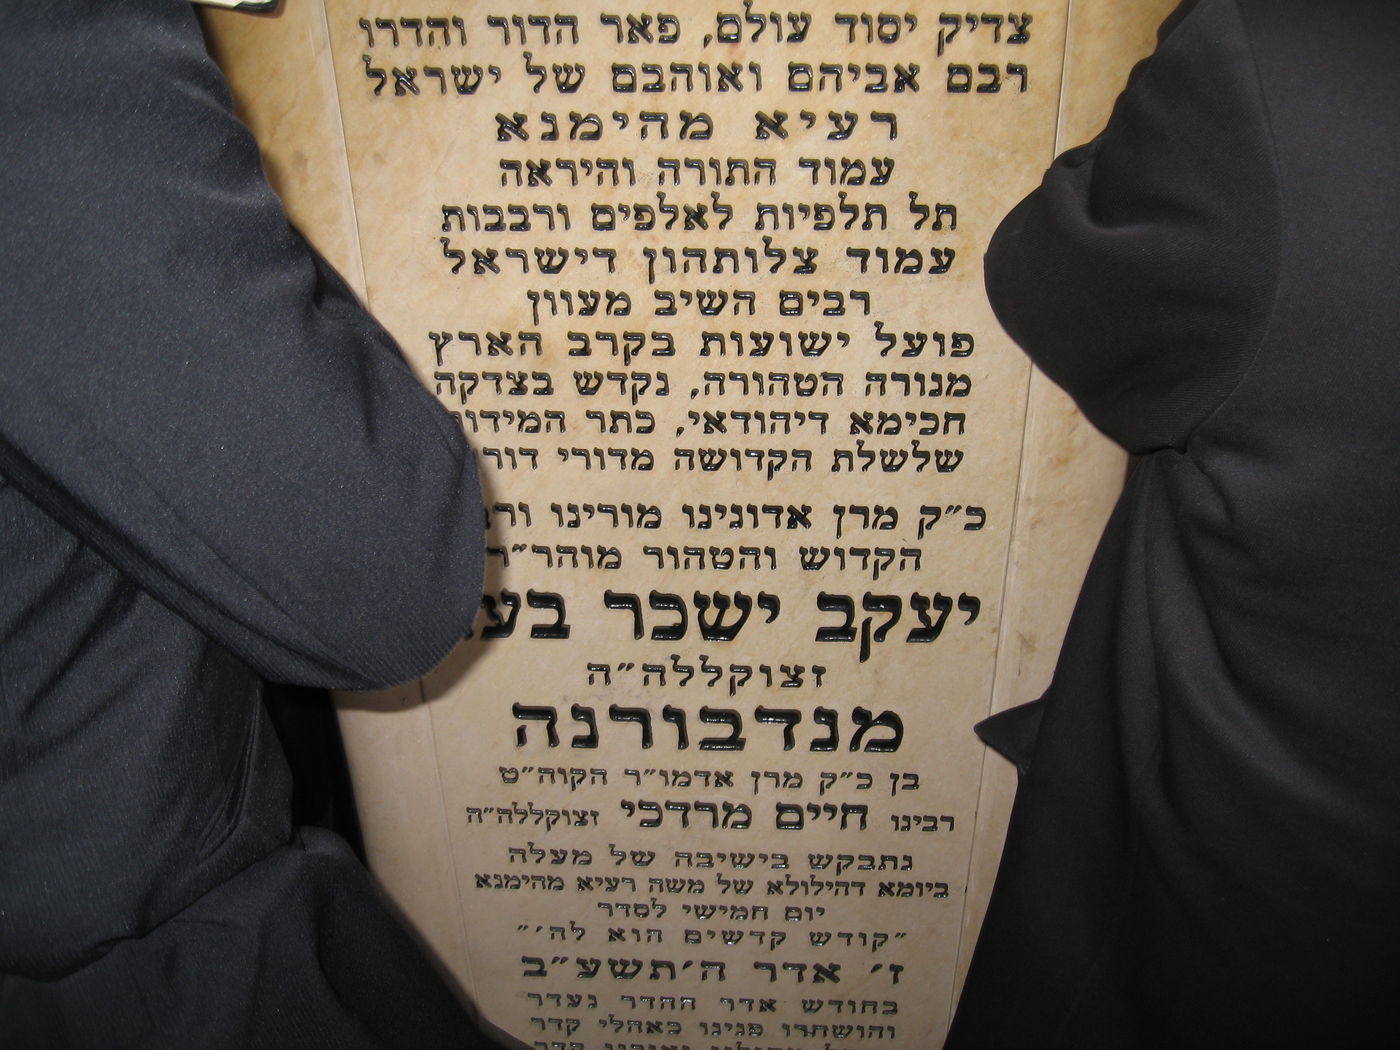 צדיק יסוד עולם, פאר הדור והדרו
רבם אביהם ואוהבם של ישראל
רעיא מהימנא
עמוד התורה והיראה
תל תלפיות לאלפים ורבבות
עמוד צלותהון דישראל
רבים השיב מעוון
פועל ישועות בקרב הארץ
מנורה הטהורה, נקדש בצדקה
חכימא דיהודאי, כתר
שלשלת הקדושה מדורי
כ״ק מרן אדוננו מורינו
הקדוש והטהור מוהר״ר
יעקב ישכר
זצוקללה״ה
מנדבורנה
בן כ״ק מרן אדמו״ר הקוה״ט
רבינו חיים מרדכי זצוקללה״ה
נתבקש בישיבה של מעלה
ביומא דהילולא של משה רעיא מהימנא
יום חמישי לסדר
״קודש קדשים הוא לה׳״
ז׳ אדר ה׳תשע״ב
בחודש אדר ההדר נעדר
והושחרו פנינו כאהלי קדר